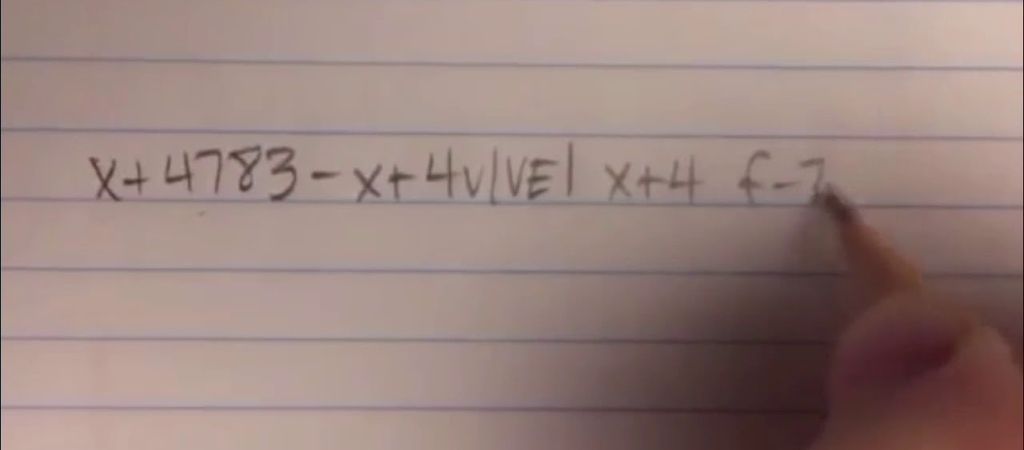 x+4783-x+4v|VE| x+4 f-7